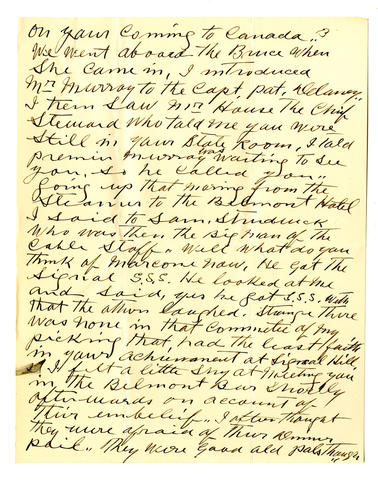 on your Coming to Canada..3
We went aboard the Bruce when
She came in, I introduced
Mr Murray to the Capt, Pat, Delaney"
I then Saw Mr House The Chief
Steward Who told me you were
Still in your State Room, I told
premier Murray was Waiting to See
you, So he Called you"
Going up that morning from the
Steamer to the Belmont Hotel
I said to Sam,
Who was then the Big man of the
Cable Staff" Well What do you
think of Marconi now, He got the
Signal S.S.S. He looked at me
and Said, yes he got S.S.S. With
that the others laughed. Strange there
was none in that Committee of my
picking that, had the least faith
in your achievement at Signal Hill,
I felt a little Shy at Meeting you
in, The Belmont Bar Shortly
afterwards on account of
their unbelief" I often thought
they were afraid of Their Dinner
pail" They were Good old pals though